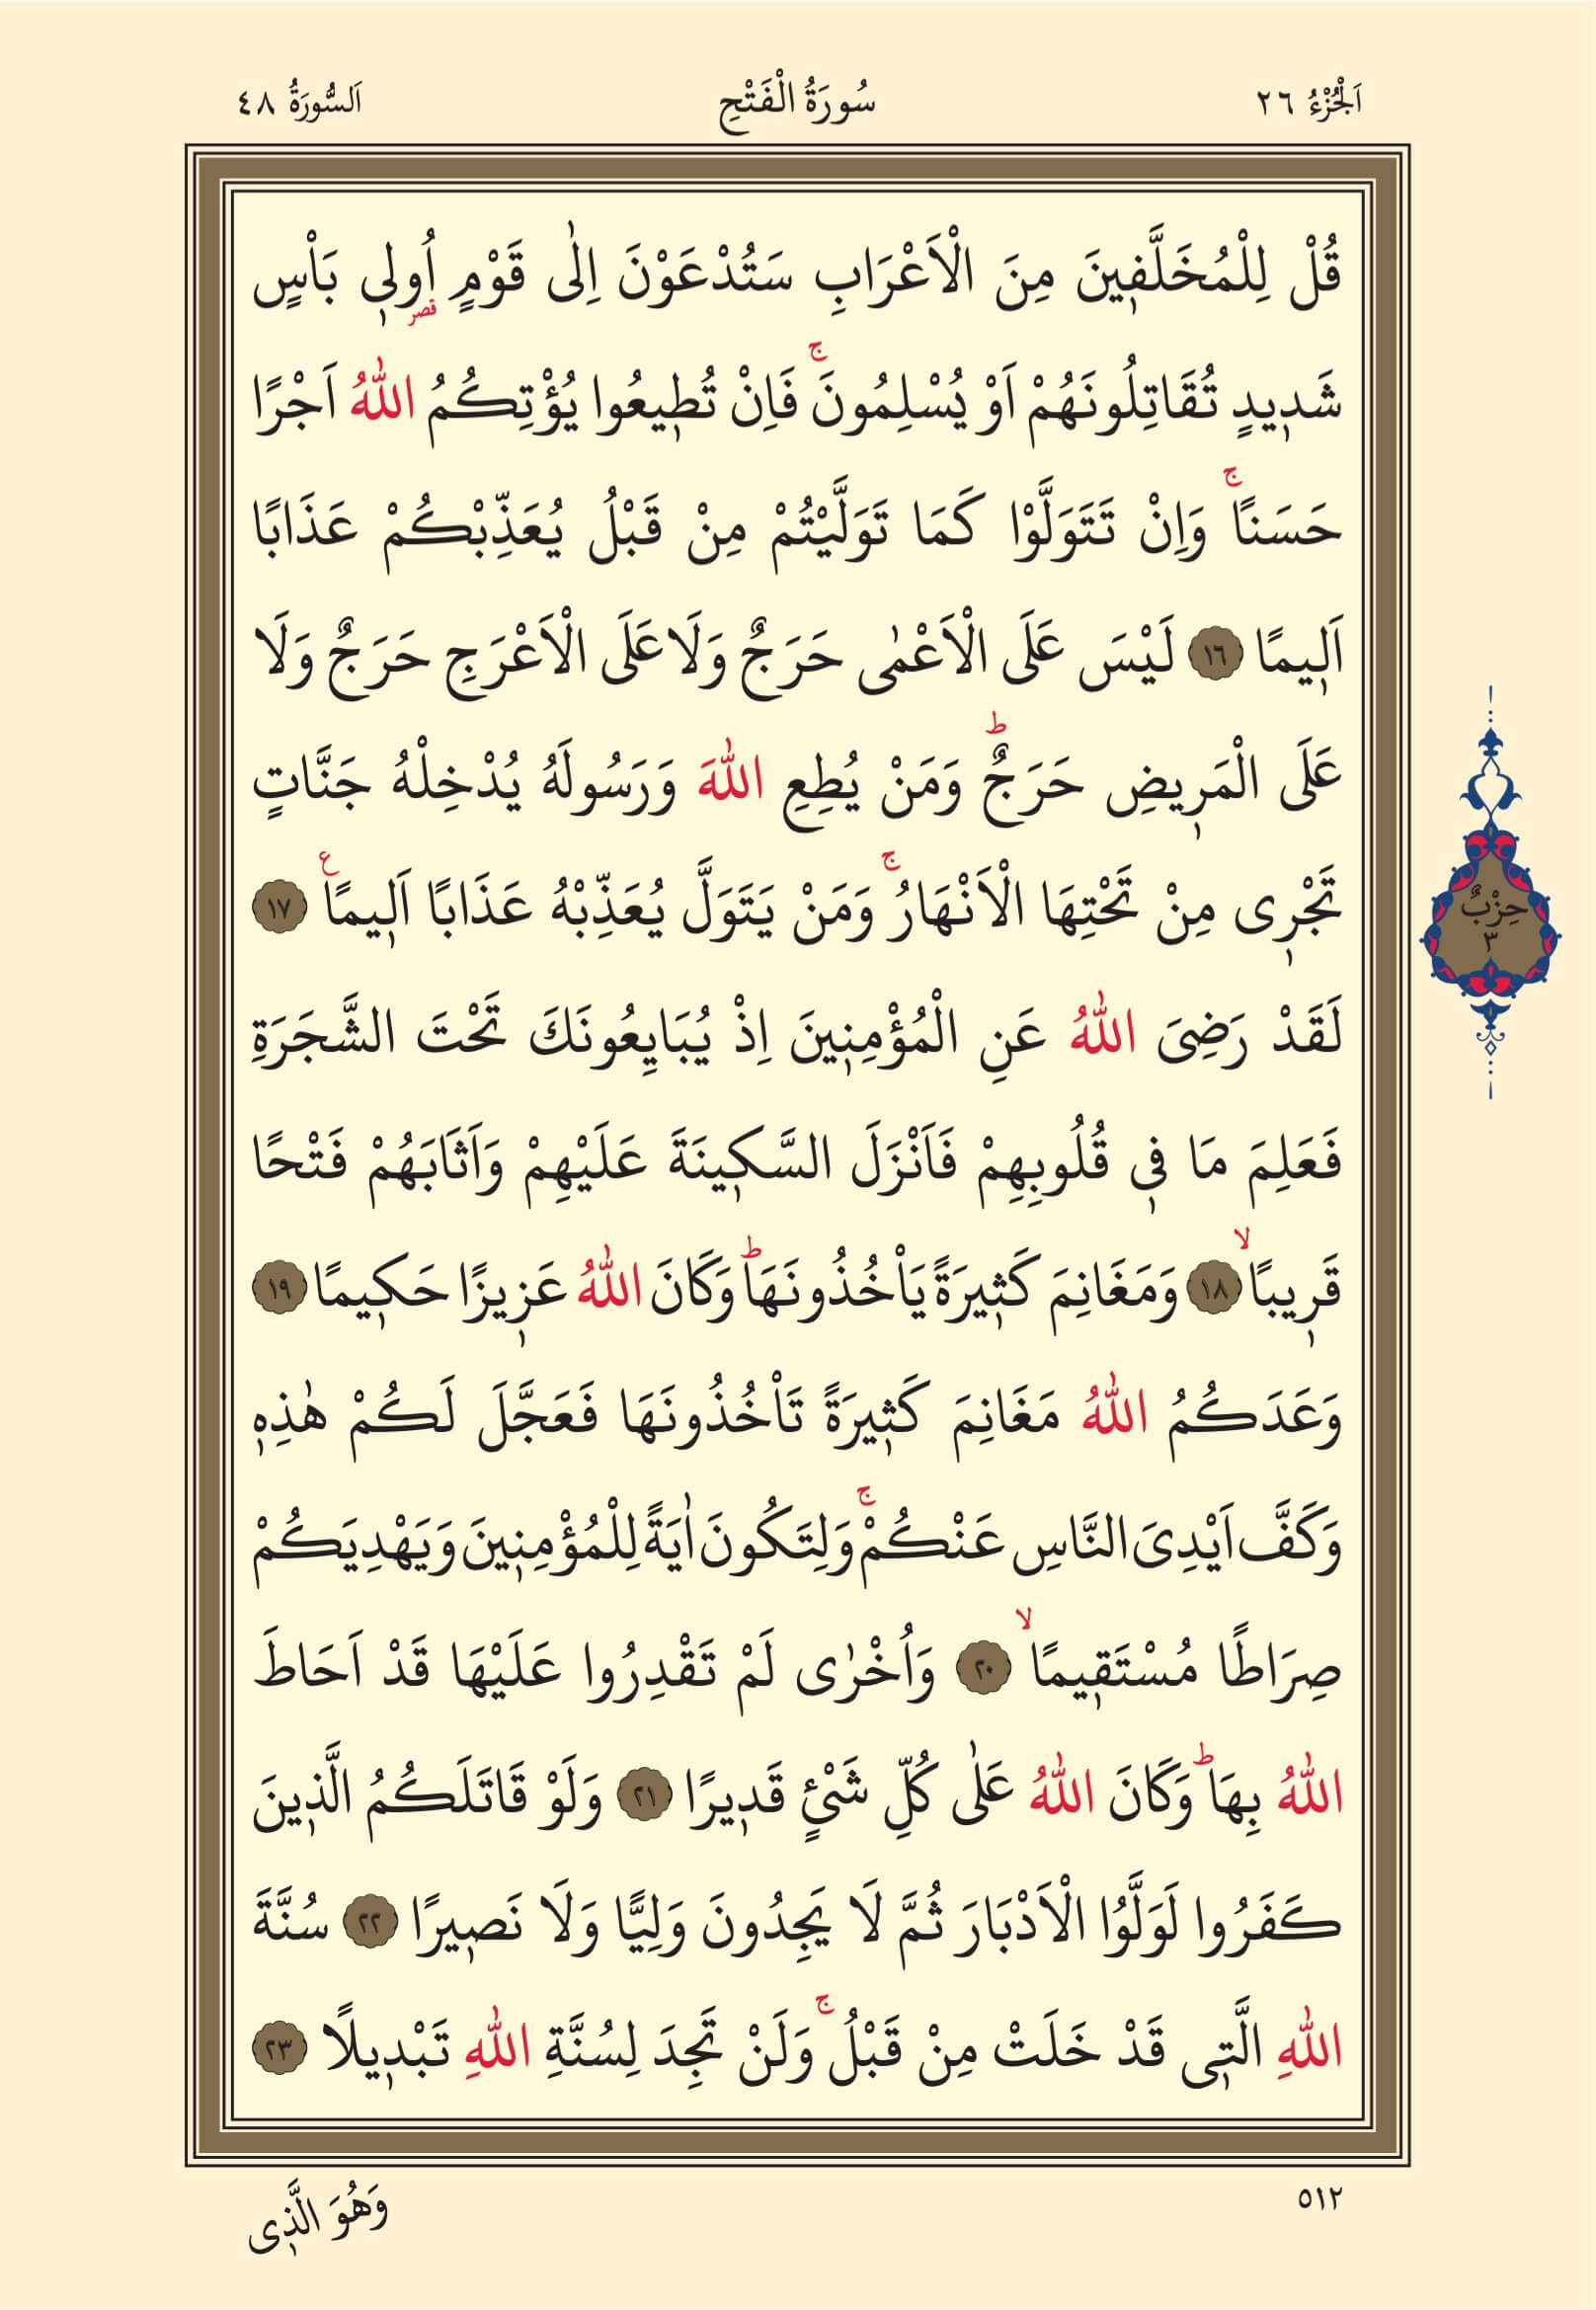 اَلْجُزْءُ ٢٦
سُورَةُ الْفَتْحِ
اَلسُّورَةُ ٤٨
قُلْ لِلْمُخَلَّف۪ينَ مِنَ الْاَعْرَابِ سَتُدْعَوْنَ اِلٰى قَوْمٍ اُو۬ل۪ي بَاْسٍ
قصر
شَد۪يدٍ تُقَاتِلُونَهُمْ اَوْ يُسْلِمُونَۚ فَاِنْ تُط۪يعُوا يُؤْتِكُمُ اللّٰهُ اَجْرًا
حَسَنًاۚ وَاِنْ تَتَوَلَّوْا كَمَا تَوَلَّيْتُمْ مِنْ قَبْلُ يُعَذِّبْكُمْ عَذَابًا
اَل۪يمًا ﴿١٦﴾ لَيْسَ عَلَى الْاَعْمٰى حَرَجٌ وَلَا عَلَى الْاَعْرَجِ حَرَجٌ وَلَا
عَلَى الْمَر۪يضِ حَرَجٌۜ وَمَنْ يُطِعِ اللّٰهَ وَرَسُولَهُ يُدْخِلْهُ جَنَّاتٍ
تَجْر۪ى مِنْ تَحْتِهَا الْاَنْهَارُۚ وَمَنْ يَتَوَلَّ يُعَذِّبْهُ عَذَابًا اَل۪يمًاع ﴿١٧﴾
لَقَدْ رَضِىَ اللّٰهُ عَنِ الْمُؤْمِن۪ينَ اِذْ يُبَايِعُونَكَ تَحْتَ الشَّجَرَةِ
فَعَلِمَ مَا ف۪ى قُلُوبِهِمْ فَاَنْزَلَ السَّك۪ينَةَ عَلَيْهِمْ وَاَثَابَهُمْ فَتْحًا
قَر۪يبًاۙ ﴿١٨﴾ وَمَغَانِمَ كَث۪يرَةً يَاْخُذُونَهَاۜ وَكَانَ اللّٰهُ عَز۪يزًا حَك۪يمًا ﴿١٩﴾
وَعَدَكُمُ اللّٰهُ مَغَانِمَ كَث۪يرَةً تَاْخُذُونَهَا فَعَجَّلَ لَكُمْ هٰذِه۪
وَكَفَّ اَيْدِىَ النَّاسِ عَنْكُمْۚ وَلِتَكُونَ اٰيَةً لِلْمُؤْمِن۪ينَ وَيَهْدِيَكُمْ
صِرَاطًا مُسْتَق۪يمًاۙ ﴿٢٠﴾ وَاُخْرٰى لَمْ تَقْدِرُوا عَلَيْهَا قَدْ اَحَاطَ
اللّٰهُ بِهَاۜ وَكَانَ اللّٰهُ عَلٰى كُلِّ شَىْءٍ قَد۪يرًا ﴿٢١﴾ وَلَوْ قَاتَلَكُمُ الَّذ۪ينَ
كَفَرُوا لَوَلَّوُا الْاَدْبَارَ ثُمَّ لَا يَجِدُونَ وَلِيًّا وَلَا نَص۪يرًا ﴿٢٢﴾ سُنَّةَ
اللّٰهِ الَّت۪ى قَدْ خَلَتْ مِنْ قَبْلُۚ وَلَنْ تَجِدَ لِسُنَّةِ اللّٰهِ تَبْد۪يلًا ﴿٢٣﴾
حِزْبٌ
٣
٥١٢
وَهُوَ الَّذ۪ى